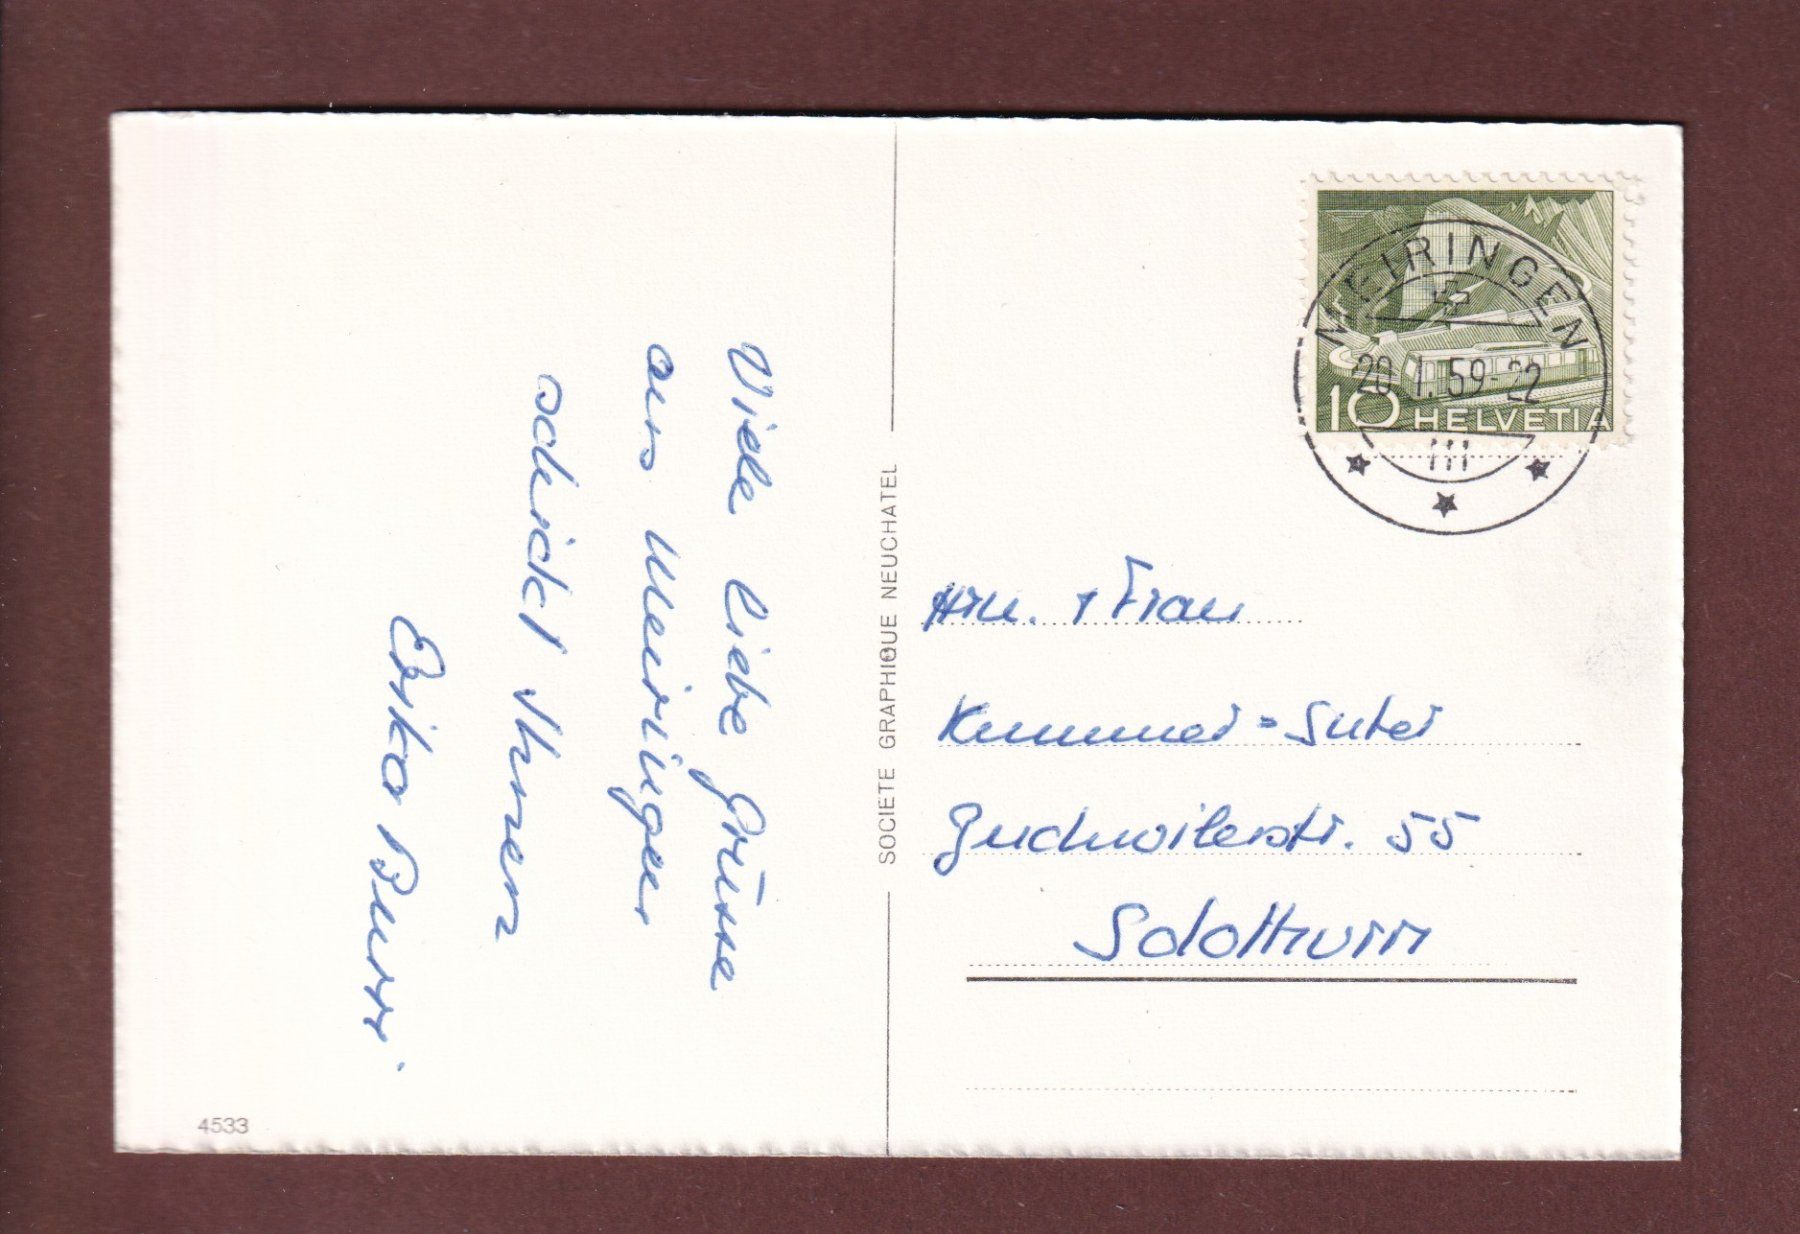 Viele liebe Grüsse
aus Meiringen
schickt Ihnen
Erika Burri.
SOCIETE GRAPHIQUE NEUCHATEL
4533
MEIRINGEN
20. I. 59-22
10 HELVETIA
Hrn. + Frau
Kummer-Suter
Buchwilerstr. 55
Solothurn